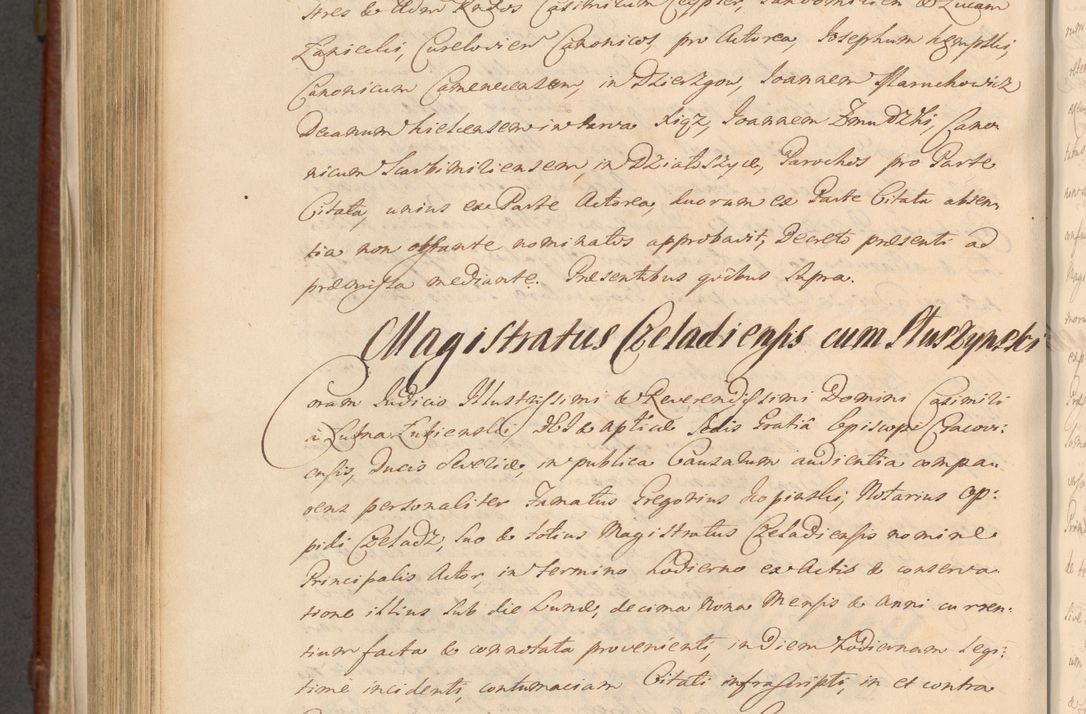 stres & Adm Rndos Casimirum Ceypler Sandomirien & Lucam
Laniecki, Curelovien Canonicos, pro Actorea, Josephum Kępski,
Canonicum Camenecensem, in Dzierzgow, Joannem Maruchowicz
Decanum Kielcensem in Parva Xiąz, Joannem Zmudzki, Cano-
nicum Scarbimiriensem, in Działoszyce, Parochos pro Parte
Citata, unius ex Parte Actorea, duorum ex Parte Citata absen-
tia non obstante nominatos approbavit, Decreto præsenti ad
præmissa mediante. Præsentibus quibus supra.
Magistratus Czeladiensis cum Stuszynski
Coram Judicio Illustrissimi & Reverendissimi Domini Casimiri
a Łubna Łubienski, DEI & Apticæ Sedis Gratiâ Episcopi Cracovi:
ensis, Ducis Severiæ, in publica Causarum audientia compa-
rens personaliter Famatus Gregorius Kopinski, Notarius Op:
pidi Czeladz, suo & totius Magistratus Czeladiensis nomine
Principalis Actor, in termino hodierno ex Actis & conserva
tione illius sub die Lunæ, decima nona Mensis & Anni curren:
tium facta & connotata provenienti, in Diem hodiernam legi:
time incidenti, contumaciam Citati infrascripti, in et contra